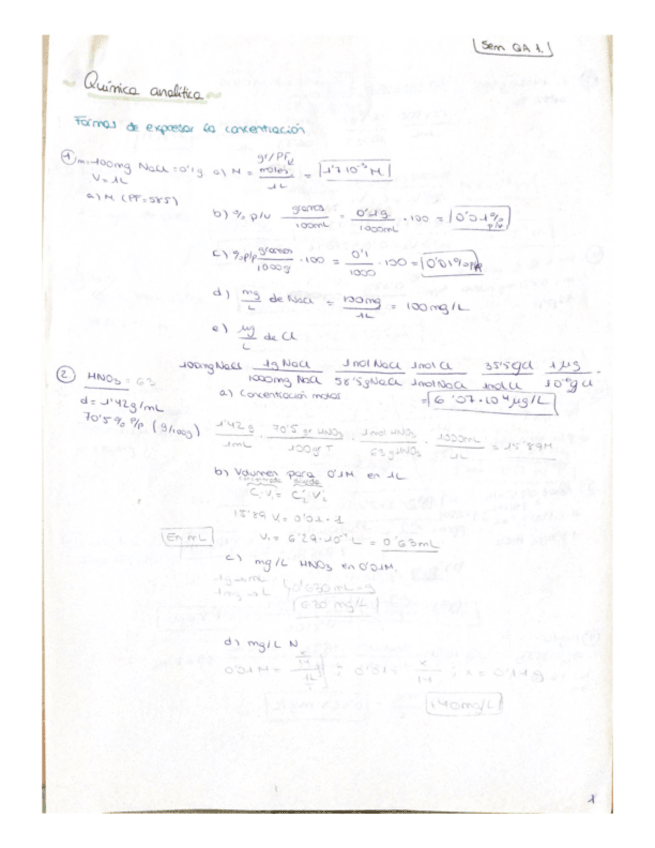 Sem QA 1.
Química analítica
Formas de expresar la concentración
① m=100mg NaCl = 0'1g a) M = gr/PM / moles / 1L = 1'7·10⁻³ M
V = 1L
a) M (PT=58'5)
b) % p/v gramos / 100mL = 0'1g / 1000mL · 100 = 0'01% p/v
c) % p/p gramos / 1000g · 100 = 0'1 / 1000 · 100 = 0'01% p/p
d) mg / L de NaCl = 100mg / 1L = 100mg/L
e) µg / L de Cl
100mg NaCl 1g NaCl / 1000mg NaCl 1mol NaCl / 58'5g NaCl 1mol Cl / 1mol NaCl 35'5g Cl / 1mol Cl 1µg / 10⁻⁶g Cl = 6'07·10⁴ µg/L
② HNO₃ = 63
d = 1'42g/mL
70'5% p/p (g/100g)
a) Concentración moles
1'42g / 1mL · 70'5 gr HNO₃ / 100gr T · 1mol HNO₃ / 63g HNO₃ · 1000mL / 1L = 15'89M
b) Volumen para 0'01M en 1L
C₁V₁ = C₂V₂
15'89 V₁ = 0'01 · 1
En mL V₁ = 6'29·10⁻⁴ L = 0'63mL
c) mg/L HNO₃ en 0'01M.
630 mg/L
d) mg/L N
0'01M = x/14 / 1L ; 0'01 = x / 14 ; x = 0'14g
140mg/L
1